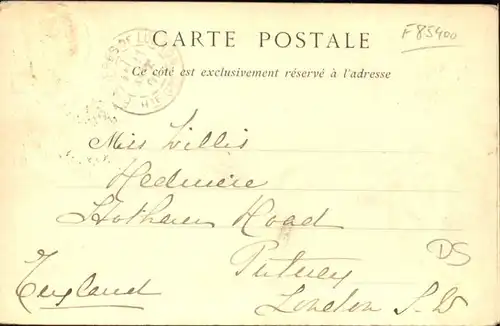 CARTE POSTALE
F85400
Ce côté est exclusivement réservé à l'adresse
Miss Willis
Redmire
Hotham Road
Putney
DS
England
London S.W